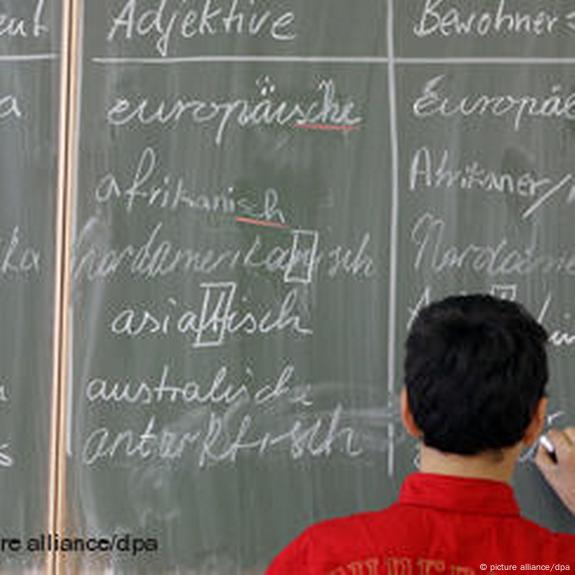 Adjektive Bewohner
europäische Europäe
afrikanisch Afrikaner/
nordamerikanisch Nordame
asiattisch
australische
antarktisch
re alliance/dpa
© picture alliance/dpa